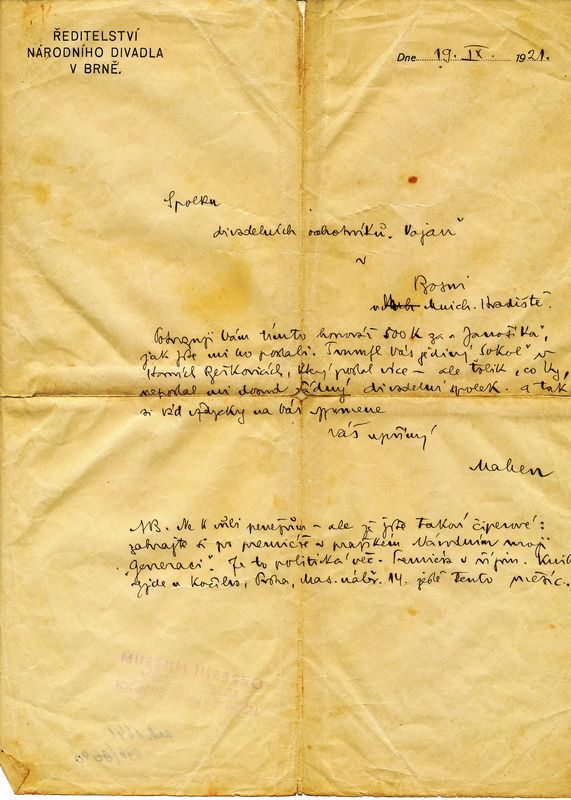 ŘEDITELSTVÍ
NÁRODNÍHO DIVADLA
V BRNĚ.
Dne 19. IX. 1921.
Spolku
divadelních ochotníků „Vojan"
v
Bosni
u Mnich. Hradiště.
Potvrzuji Vám tímto honorář 500 K za „Janošíka",
jak jste mi ho poslali. Trumfl Vás jediný „Sokol" v
Horních Beřkovicích, který poslal více – ale tolik, co Vy,
neposlal mi dosud žádný divadelní spolek. a tak
si rád vždycky na Vás vzpomene
Váš upřímný
Mahen
NB. Ne k vůli penězům – ale že jste takoví čiperové:
zahrajte si po premiéře v pražském Národním moji
„Generaci". Je to politická věc. Premiéra v říjnu.
vyjde u Kočího, Praha, Mas. nábř. 14. ještě tento měsíc.
OKRESNÍ MUZEUM